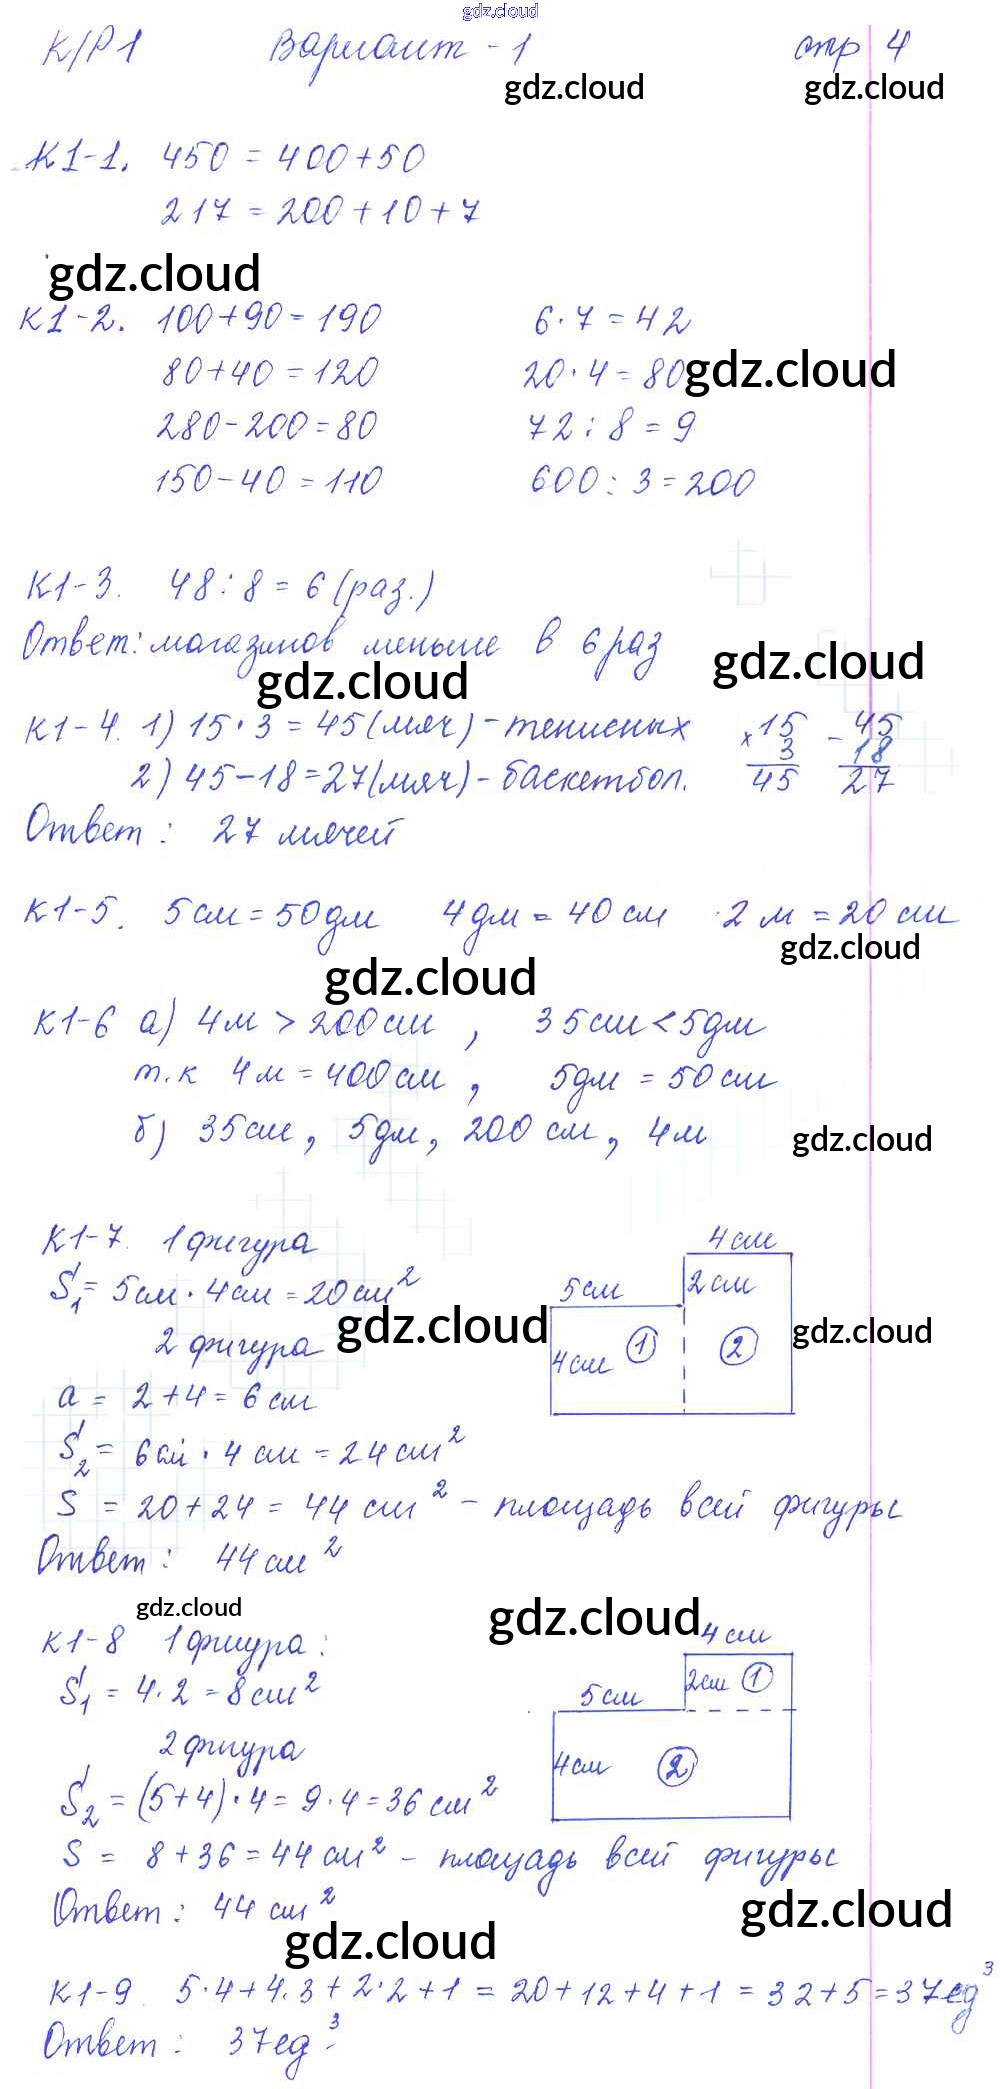 gdz.cloud
К/Р1 Вариант - 1 стр 4
gdz.cloud gdz.cloud
К1-1. 450 = 400+50
217 = 200+10+7
gdz.cloud
К1-2. 100+90=190 6·7=42
80+40=120 20·4=80 gdz.cloud
280-200=80 72:8=9
150-40=110 600:3=200
К1-3. 48:8=6(раз.)
Ответ: магазинов меньше в 6 раз gdz.cloud
gdz.cloud
К1-4. 1) 15·3=45(мяч)-тенисных ×15 -45
2) 45-18=27(мяч)-баскетбол. 3 18
45 27
Ответ: 27 мячей
К1-5. 5см=50дм 4дм=40см 2м=20см
gdz.cloud
gdz.cloud
К1-6 а) 4м > 200см, 35см<5дм
т.к 4м=400см, 5дм=50см
б) 35см, 5дм, 200см, 4м gdz.cloud
К1-7. 1 фигура 4см
S₁= 5см·4см=20см² 5см 2см
2 фигура gdz.cloud 4см 1 2 gdz.cloud
a = 2+4=6см
S₂= 6см·4см=24см²
S = 20+24=44см² - площадь всей фигуры
Ответ: 44см²
gdz.cloud gdz.cloud
К1-8 1фигура: 4см
S₁ = 4·2=8см² 5см 2см 1
2фигура
S₂=(5+4)·4=9·4=36см² 4см 2
S = 8+36=44см² - площадь всей фигуры
Ответ: 44см² gdz.cloud
gdz.cloud
К1-9. 5·4+4.3+2·2+1 = 20+12+4+1 = 32+5=37ед³
Ответ: 37ед³